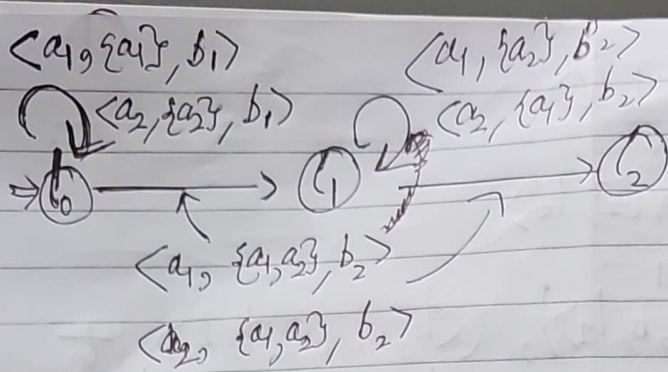 <a₁, {a₁}, b₁>
<a₁, {a₂}, b₂>
<a₂, {a₂}, b₁>
<a₂, {a₁}, b₂>
l₀
l₁
l₂
<a₁, {a₁,a₂}, b₂>
<a₂, {a₁,a₂}, b₂>